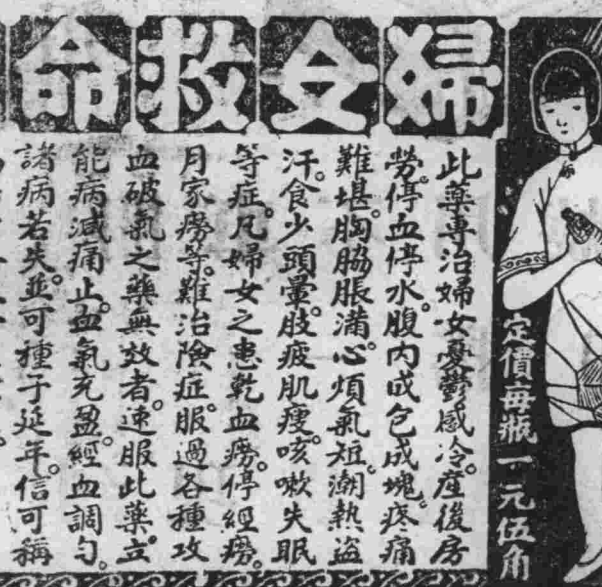 婦女救命
定價每瓶一元伍角
此藥專治婦女憂鬱感冷。產後房
勞。停血停水。腹內成包成塊。疼痛
難堪。胸脇脹滿。心煩氣短。潮熱盜
汗。食少頭暈。肢疲肌瘦。咳嗽失眠
等症。凡婦女之患乾血癆。停經癆。
月家癆等。難治險症。服過各種攻
血破氣之藥無效者。速服此藥。立
能病減痛止。血氣充盈。經血調勻。
諸病若失。並可種子延年。信可稱